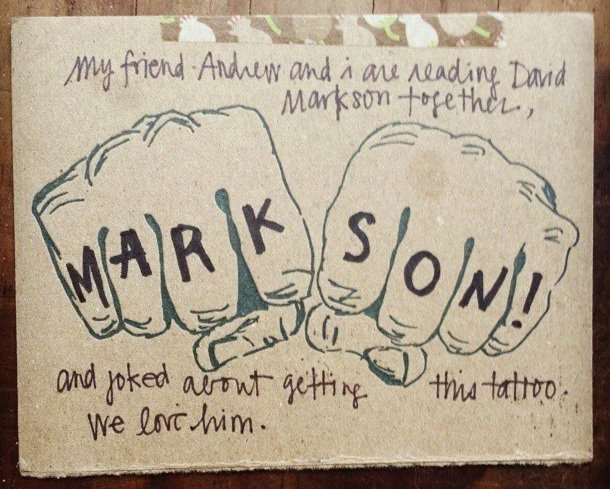 my friend Andrew and i are reading David
Markson together,
MARK SON!
and joked about getting this tattoo.
We love him.